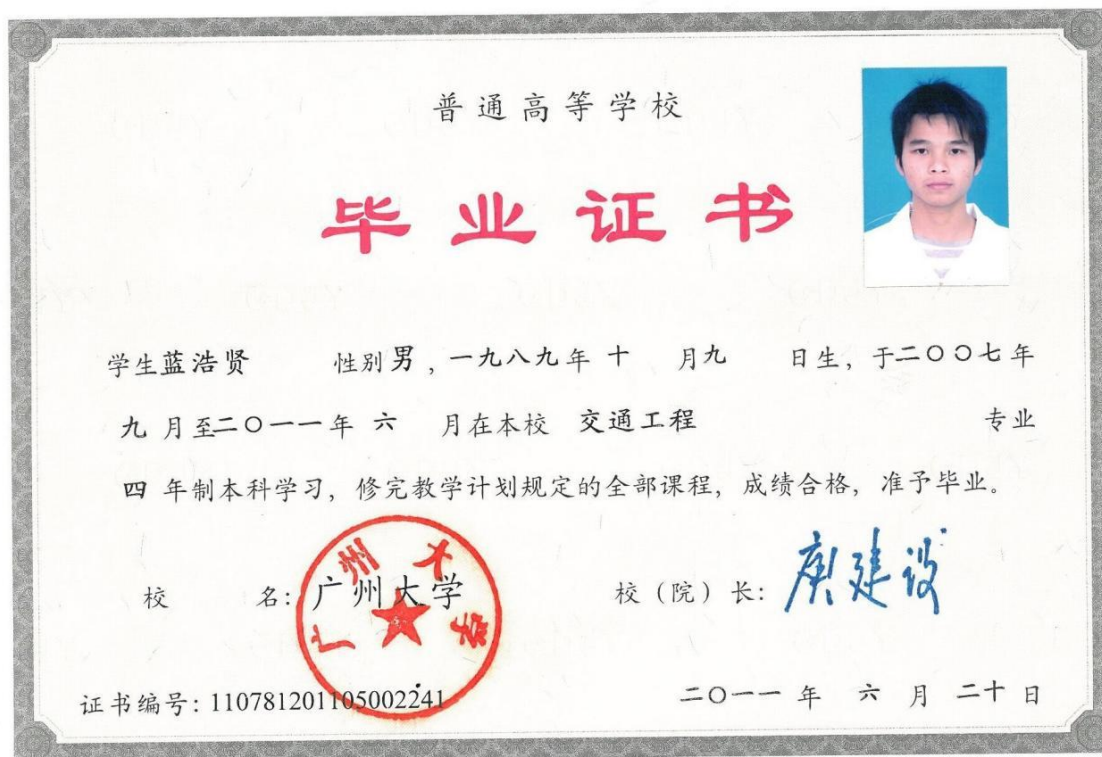 普通高等学校
毕业证书
学生蓝浩贤 性别男，一九八九年 十 月九 日生，于二〇〇七年
九 月至二〇一一年 六 月在本校 交通工程 专业
四 年制本科学习，修完教学计划规定的全部课程，成绩合格，准予毕业。
校 名：广州大学
广州大学
校（院）长：庾建设
证书编号：110781201105002241
二〇一一 年 六 月 二十 日